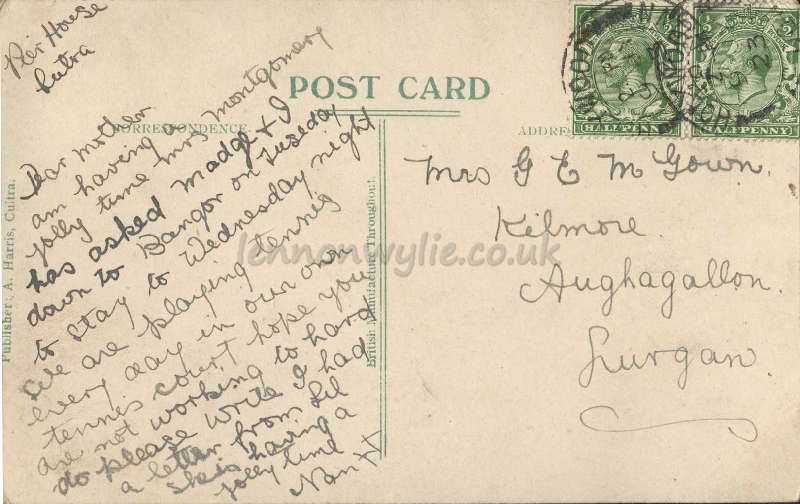 Pier House
Cutra
POST CARD
CORRESPONDENCE
ADDRE
HALFPENNY
HALFPENNY
Dear Mother
am having a
jolly time Mrs Montgomery
has asked Madge & I
down to Bangor on Tuseday
to stay to Wednesday night
We are playing tennis
every day in our own
tennis court hope you
are not working to hard
do please write I had
a letter from Lil
she is having a
jolly time
Nan XX
Mrs G E McGown.
Kilmore.
Aughagallon.
Lurgan.
Publisher: A. Harris, Cultra.
British Manufacture Throughout.
lennonwylie.co.uk